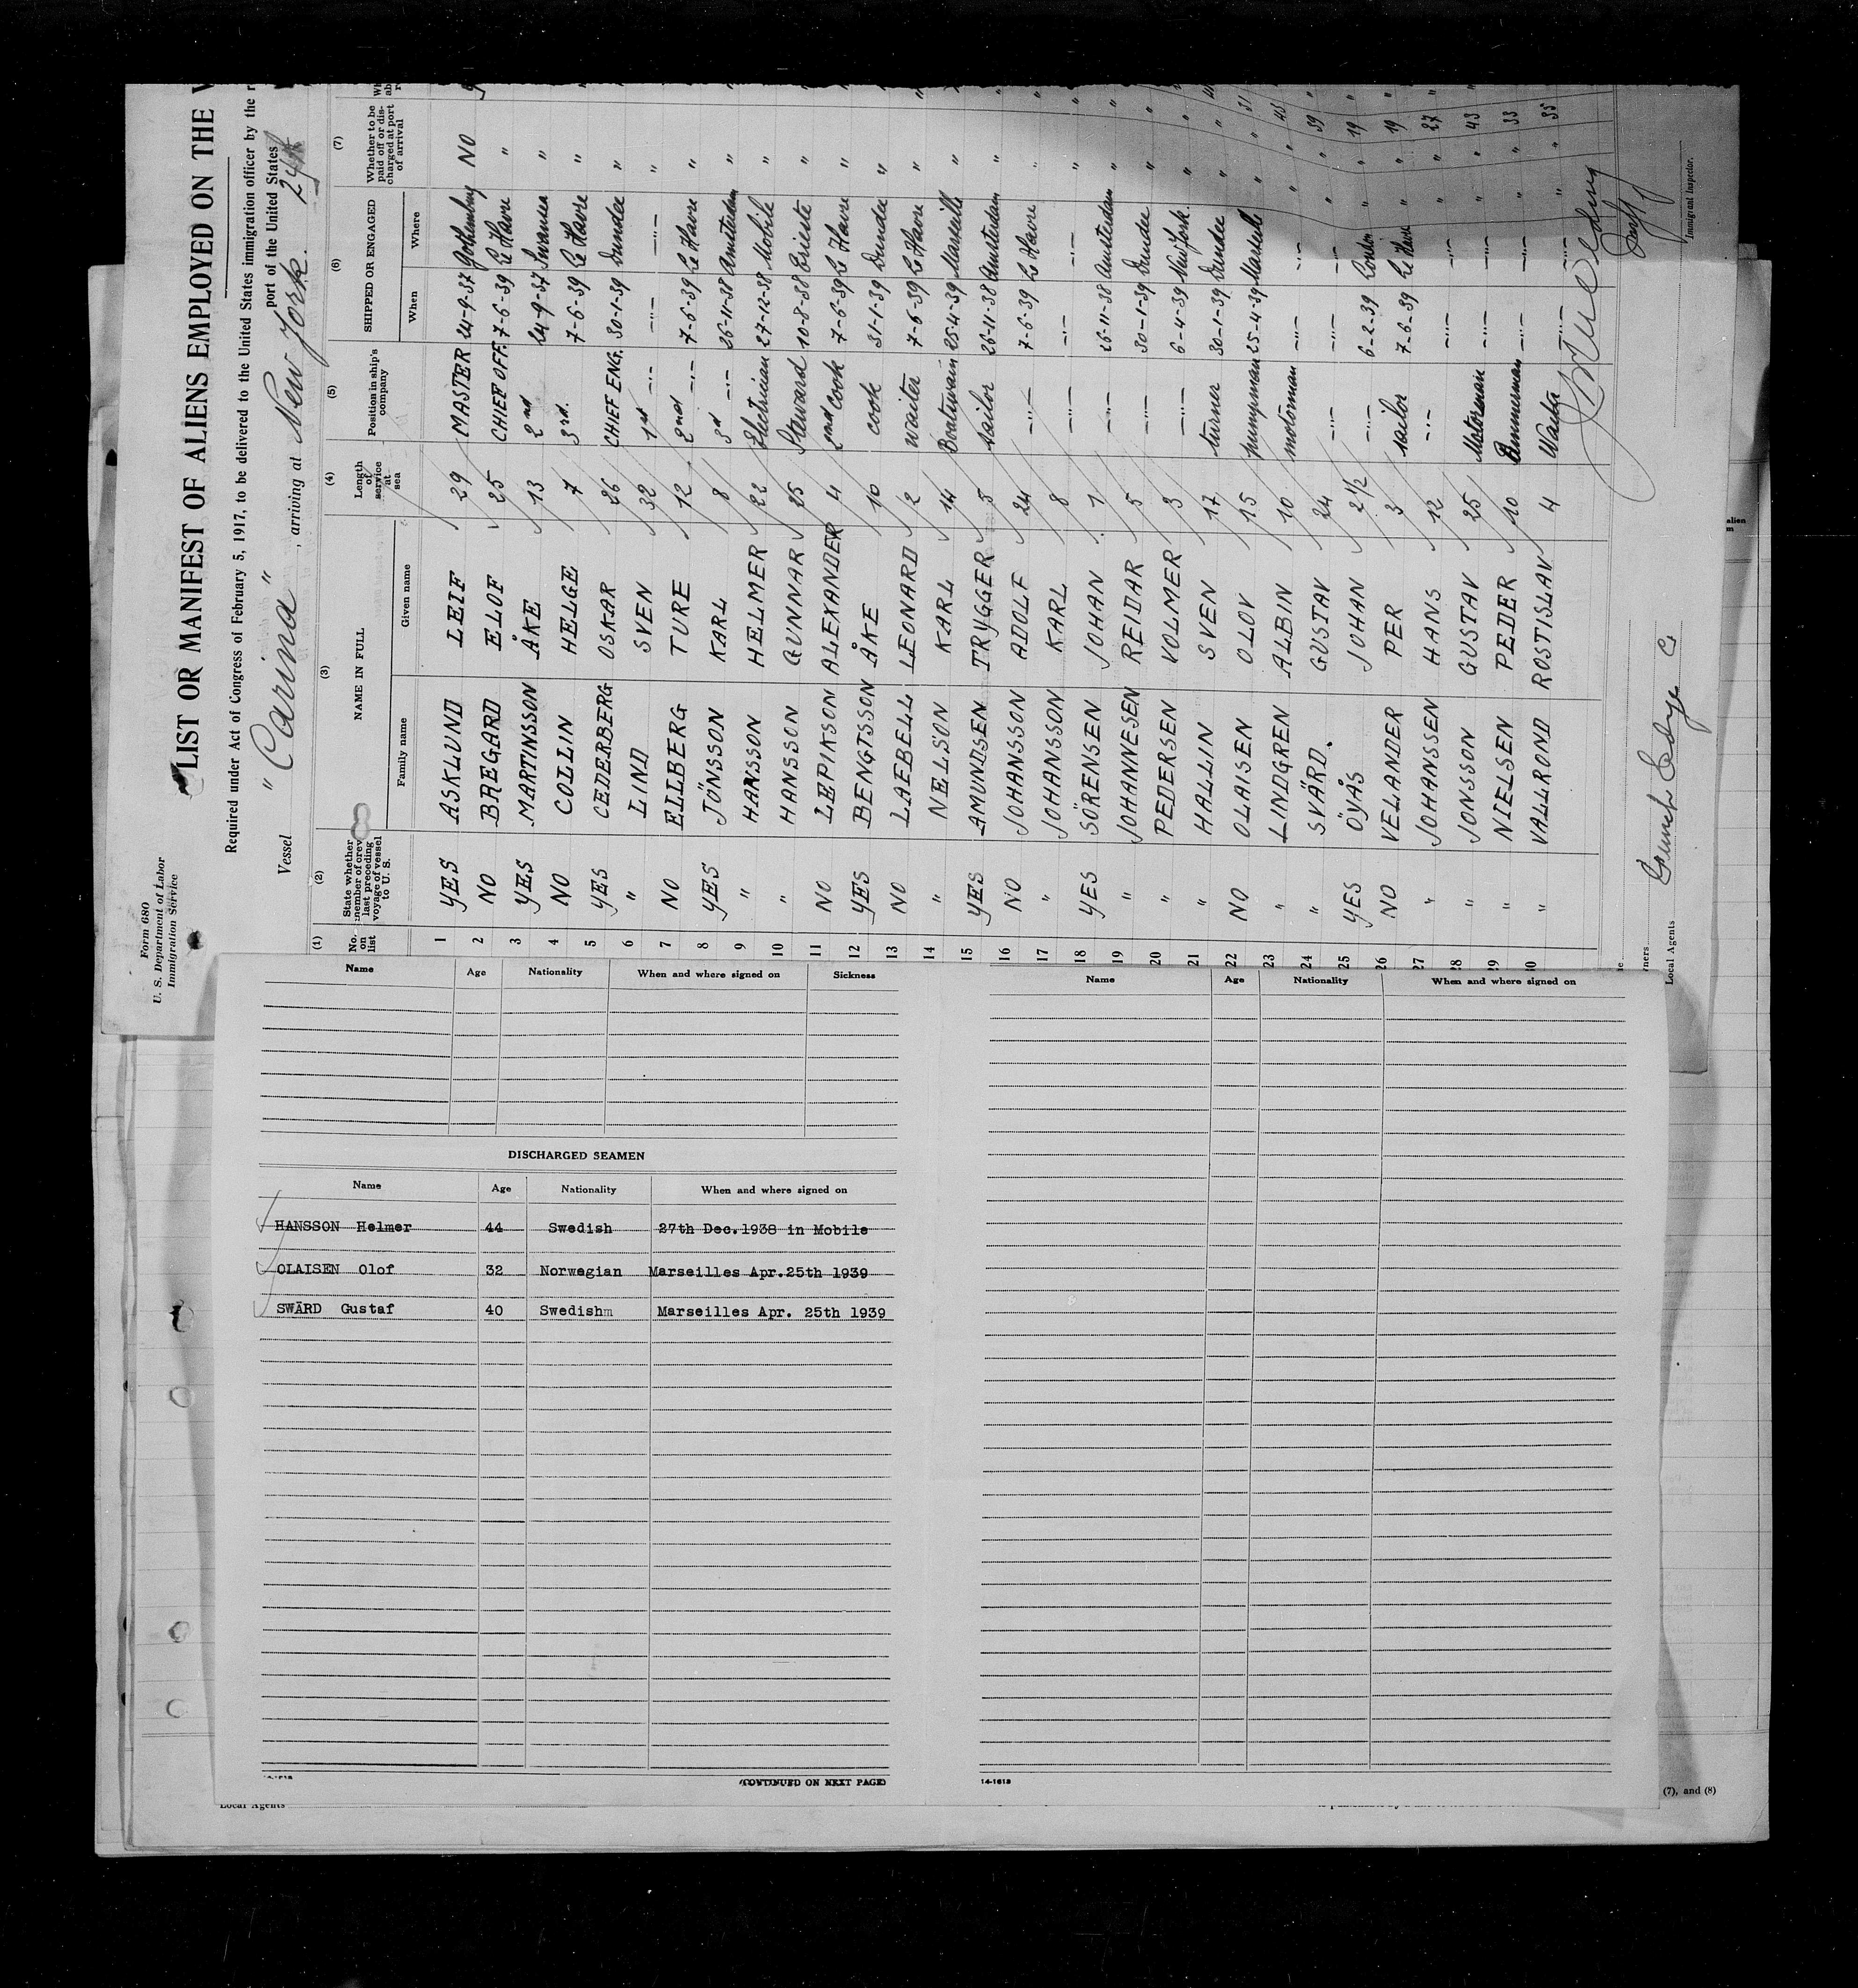 Form 680
U. S. Department of Labor
Immigration Service
LIST OR MANIFEST OF ALIENS EMPLOYED ON THE
Required under Act of Congress of February 5, 1917, to be delivered to the United States immigration officer by the
port of the United States
Vessel "Carina", arriving at New York. 24th
(1) (2) (3) (4) (5) (6) (7)
No. on list State whether member of crew last preceding voyage of vessel to U. S. NAME IN FULL Length of service at sea Position in ship's company SHIPPED OR ENGAGED Whether to be paid off or discharged at port of arrival
Family name Given name When Where
1 YES ASKLUND LEIF 29 MASTER 24-9-37 Gothenburg NO
2 NO BREGARD ELOF 25 CHIEF OFF. 7-6-39 Le Havre "
3 YES MARTINSSON ÅKE 13 2nd 24-9-37 Swansea "
4 NO COLLIN HELGE 7 3rd. 7-6-39 Le Havre "
5 YES CEDERBERG OSKAR 26 CHIEF ENG. 30-1-39 Dundee "
6 " LIND SVEN 32 1st -"- -"- -"- "
7 NO ELLBERG TURE 12 2nd -"- 7-6-39 Le Havre "
8 YES JÖNSSON KARL 8 3d -"- 26-11-38 Amsterdam "
9 " HANSSON HELMER 22 Electrician 27-12-38 Mobile "
10 " HANSSON GUNNAR 25 Steward 10-8-38 Trieste "
11 NO LEPIKSON ALEXANDER 4 2nd cook 7-6-39 Le Havre "
12 YES BENGTSSON ÅKE 10 cook 31-1-39 Dundee "
13 NO LAEBELL LEONARD 2 waiter 7-6-39 Le Havre "
14 " NELSON KARL 14 Boatswain 25-4-39 Marseille "
15 YES AMUNDSEN TRYGGER 5 sailor 26-11-38 Amsterdam "
16 NO JOHANSSON ADOLF 24 -"- 7-6-39 Le Havre "
17 " JOHANSSON KARL 8 -"- -"- -"- "
18 YES SÖRENSEN JOHAN 1 -"- 26-11-38 Amsterdam "
19 " JOHANNESEN REIDAR 5 -"- 30-1-39 Dundee "
20 " PEDERSEN VOLMER 3 -"- 6-4-39 New York. "
21 " HALLIN SVEN 17 turner 30-1-39 Dundee "
22 NO OLAISEN OLOV 15 pumpman 25-4-39 Marseille " 31
23 " LINDGREN ALBIN 10 motorman -"- -"- " 45
24 " SVÄRD. GUSTAV 24 -"- -"- -"- " 39
25 YES ÖVÅS JOHAN 2 1/2 -"- 6-2-39 London " 19
26 NO VELANDER PER 3 sailor 7-6-39 Le Havre " 19
27 " JOHANSSEN HANS 12 -"- -"- -"- " 27
28 " JONSSON GUSTAV 25 Motorman -"- -"- " 43
29 " NIELSEN PEDER 10 -"- -"- " 33
30 " VALLROND ROSTISLAV 4 -"- -"- " 35
Local Agents
Immigrant Inspector.
Name Age Nationality When and where signed on Sickness
DISCHARGED SEAMEN
Name Age Nationality When and where signed on
HANSSON Helmer 44 Swedish 27th Dec.1938 in Mobile
OLAISEN Olof 32 Norwegian Marseilles Apr.25th 1939
SWÄRD Gustaf 40 Swedishm Marseilles Apr. 25th 1939
(CONTINUED ON NEXT PAGE)
Name Age Nationality When and where signed on
14-1618
Local Agents
(7), and (8)